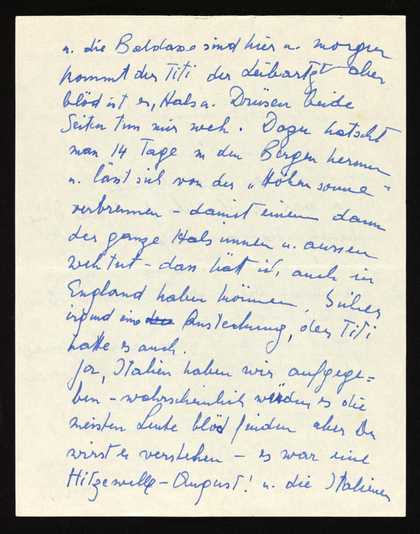 u. die Baldass sind hier u. morgen
kommt der Titi der Leibarzt aber
blöd ist es, Hals u. Drüsen beide
Seiten tun mir weh. Dazu hatscht
man 14 Tage in den Bergen herum
u. lässt sich von der „Höhensonne"
verbrennen – damit einem dann
der ganze Hals innen u. aussen
weh tut – das hätt ich, auch in
England haben können. Sicher
irgend eine Ansteckung, der Titi
hatte es auch.
Ja, Italien haben wir aufgege=
ben – wahrscheinlich würden es die
meisten Leute blöd finden aber Du
wirst es verstehen – es war eine
Hitzewelle – August! u. die Italiener